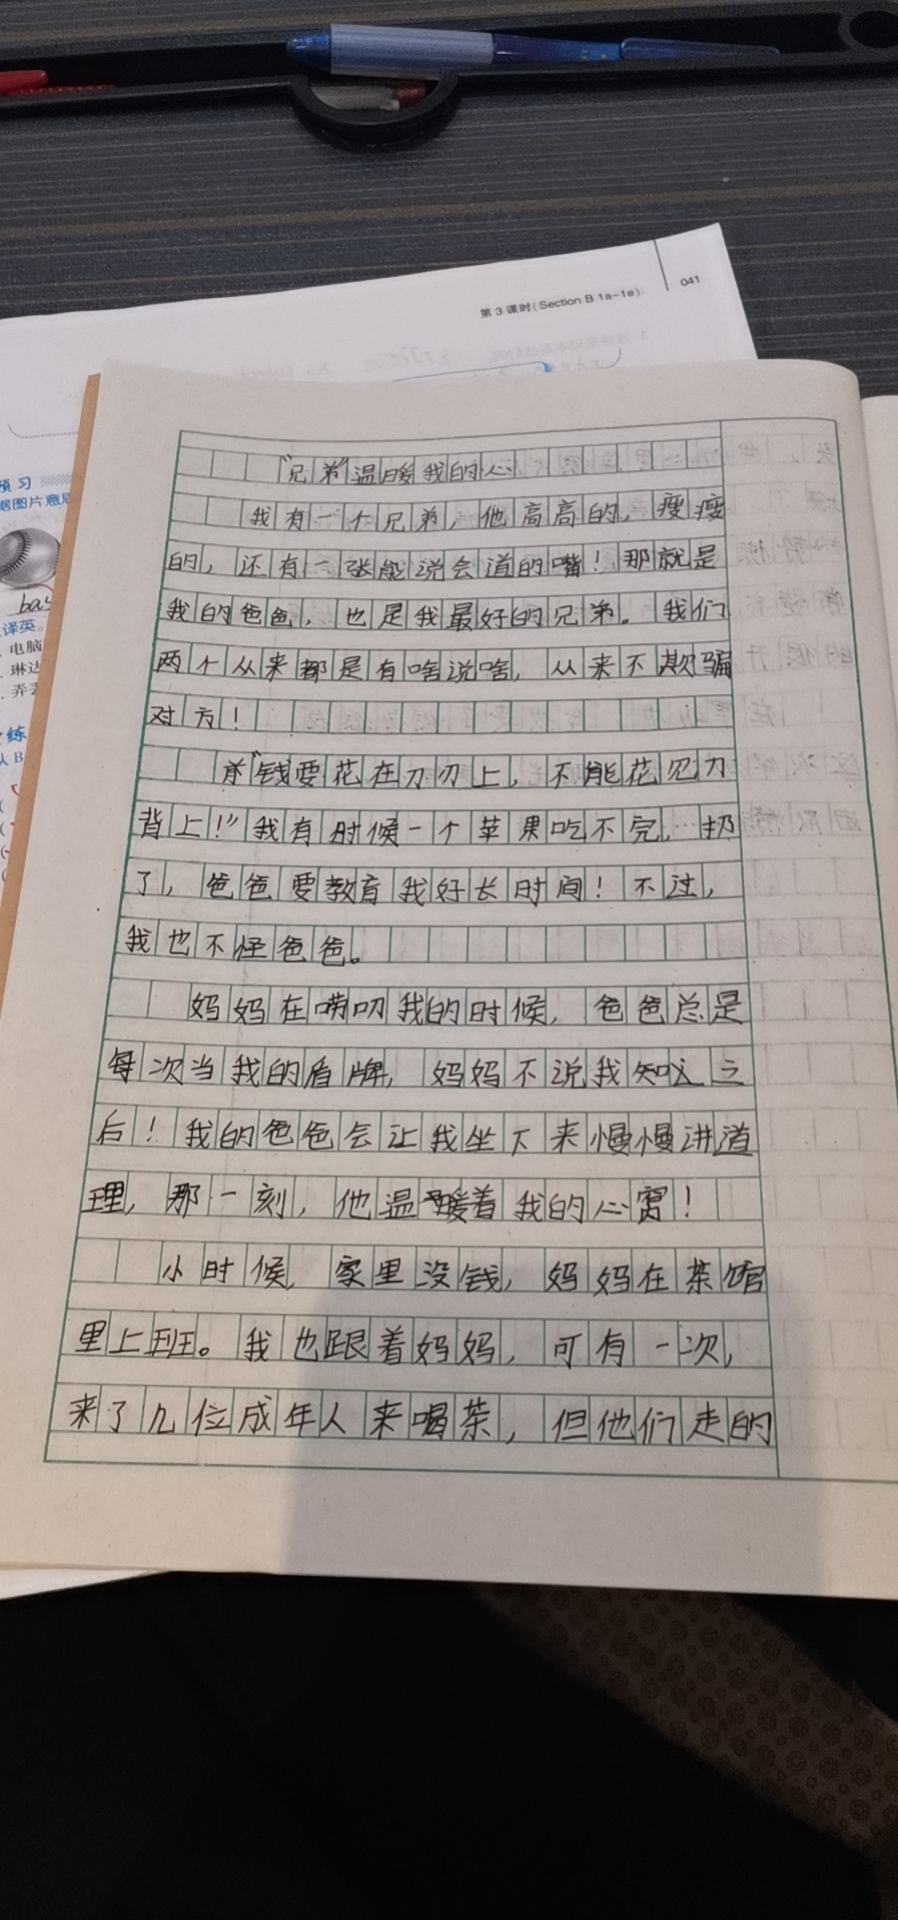 第3课时(Section B 1a-1e) 041
预习
bas
译英。
电脑
琳达
练
"兄弟"温暖我的心
我有一个兄弟，他高高的，瘦瘦
的，还有一张能说会道的嘴！那就是
我的爸爸，也是我最好的兄弟。我们
两个从来都是有啥说啥，从来不欺骗
对方！
"钱要花在刀刃上，不能花刀
背上！"我有时候一个苹果吃不完，扔
了，爸爸要教育我好长时间！不过，
我也不怪爸爸。
妈妈在唠叨我的时候，爸爸总是
每次当我的盾牌，妈妈不说我知之
后！我的爸爸会让我坐下来慢慢讲道
理，那一刻，他温暖着我的心窝！
小时候，家里没钱，妈妈在茶馆
里上班。我也跟着妈妈，可有一次，
来了几位成年人来喝茶，但他们走的